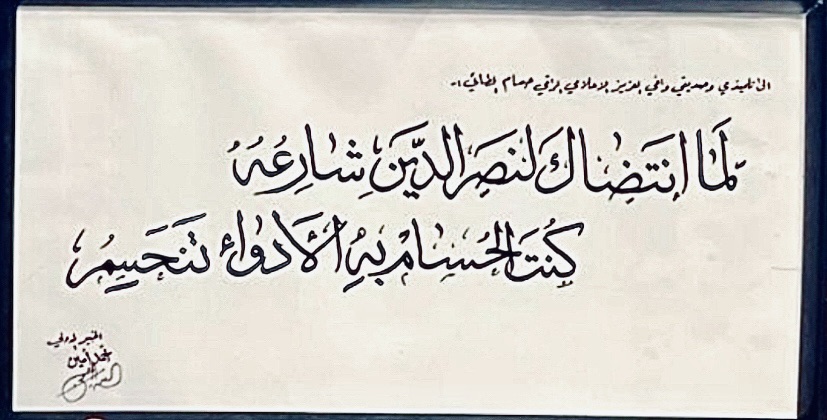 الى تلميذي وصديقي واخي العزيز الاعلامي الراقي حسام الطائي :-
لَمَّا انْتَضَاكَ لِنَصرِ الدِّينِ شَارِعُهُ
كُنتَ الحُسَامَ بِهِ الأَدواءُ تَنحَسِمُ
الخبير الدولي
محمد أمين